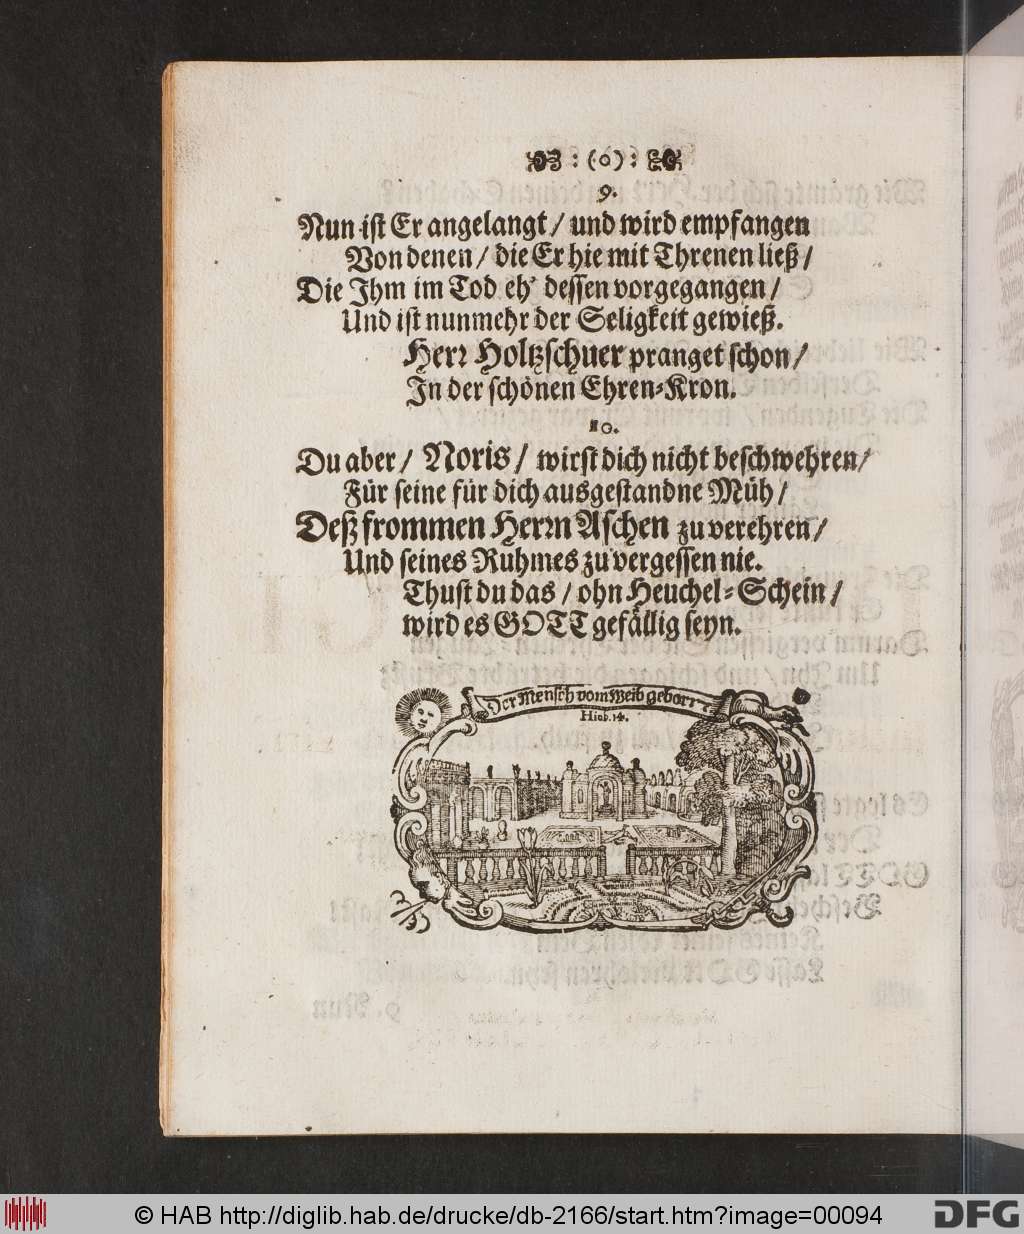 :(o):
9.
Nun ist Er angelangt / und wird empfangen
Von denen / die Er hie mit Threnen ließ /
Die Jhm im Tod eh' dessen vorgegangen /
Und ist nunmehr der Seligkeit gewieß.
Herr Holtzschuer pranget schon /
Jn der schönen Ehren-Kron.
10.
Du aber / Noris / wirst dich nicht beschwehren /
Für seine für dich ausgestandne Müh /
Deß frommen Herrn Aschen zu verehren /
Und seines Ruhmes zu vergessen nie.
Thust du das / ohn Heuchel-Schein /
wird es GOTT gefällig seyn.
Der Mensch vom Weib geborr.
Hiob. 14.
© HAB http://diglib.hab.de/drucke/db-2166/start.htm?image=00094
DFG